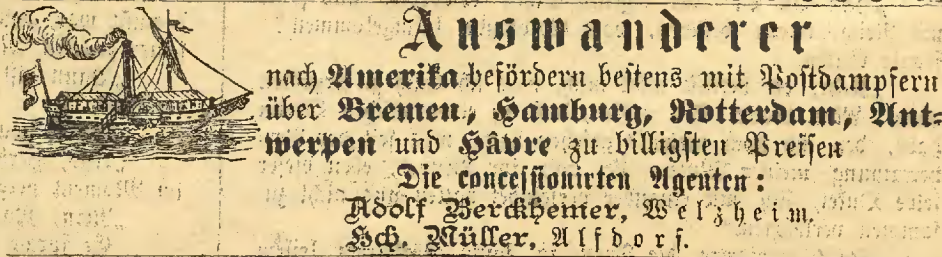 Auswanderer
nach Amerika befördern bestens mit Postdampfern
über Bremen, Hamburg, Rotterdam, Ant-
werpen und Hâvre zu billigsten Preisen
Die concessionirten Agenten:
Adolf Berckhemer, Welzheim.
Hch. Müller, Alfdorf.